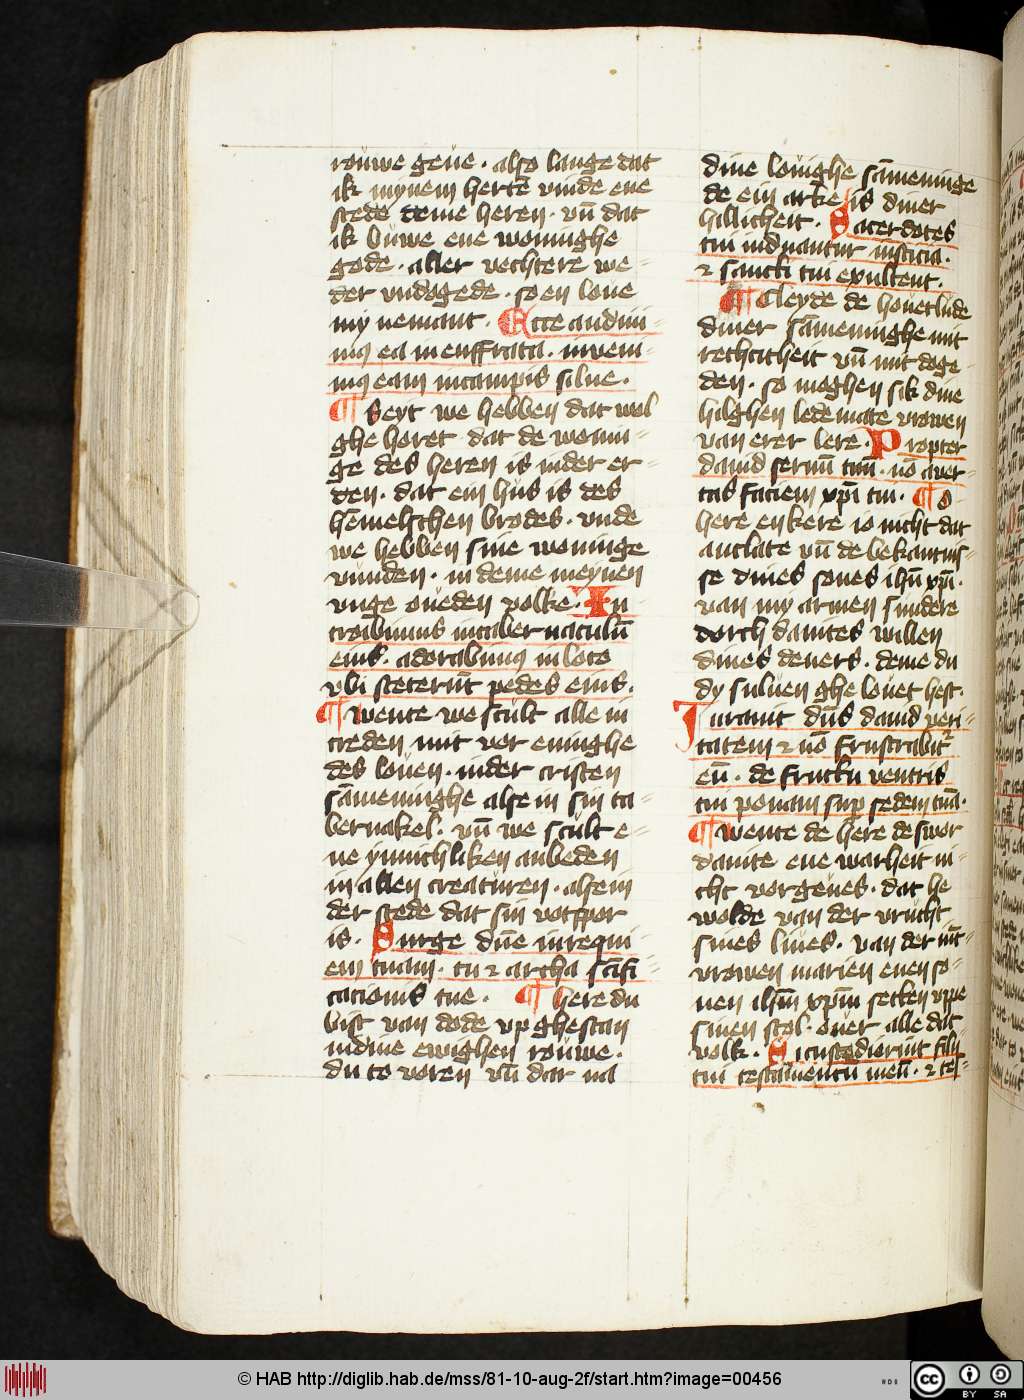 rouwe geue · also lange dat
ik mynem herte vinde ene
stede deme heren · vn̄ dat
ik buwe ene woninghe
gode · aller vechtere we-
der vndogede · so en loue
my nemant · Ecce audiui-
mus ea in euffrata · inueni-
mus eam in campis silue ·
¶ Seyt we hebben dat wol
ghe horet dat de wonin-
ge des heren is in der er-
den · dat ein hus is des
hēmelschen brodes · vnde
we hebben sine woninge
vunden · in deme meynen
vnge oueden volke · In
troibimus in tabernaculū
eius · adorabimus in loco
vbi steterūt pedes eius ·
¶ wente we scult alle in
treden mit vor eninghe
des louen · in der cristen
sāmeninghe alse in sin ta-
bernakel · vn̄ we scult e-
ne ynnichliken anbeden
in allen creaturen · alse in
der stede dat sin votspor
is · Surge dn̄e in requi-
em tuam · tu ⁊ archa scīfi-
cacionis tue · ¶ here du
bist van dode vp ghestan
in dine ewighen rouwe ·
du to voren vn̄ dar na
dine louighe sāmeninge
de ein arke is diner
hillicheit · Sacerdotes
tui induantur iusticia ·
⁊ sancti tui exultent ·
¶ Cleyde de houetlude
diner sāmeninghe mit
rechticheit vn̄ mit doge-
den · so moghen sik dine
hilghen ledemate vrowen
van erer lere · Propter
dauid seruū tuū · nō auer-
tas faciem xpī tui · ¶ O
here en kere io nicht dat
antlate vn̄ de bekantnis-
se dines sones ihū xpī ·
van my armen sundere
dorch dauites willen
dines deners · deme du
dy suluen ghe louet hest ·
Iurauit dn̄s dauid veri-
tatem ⁊ nō frustrabit᷑
eū · de fructu ventris
tui ponam sup sedem tuā ·
¶ wente de here de swor
dauite ene warheit ni-
cht vorgeues · dat he
wolde van der vrucht
sines liues · van der iūc-
vrowen marien enen so-
nen ihm̄ xpm̄ setten vppe
sinen stol · ouer alle dat
volk · Si custodierint filii
tui testamentū meū · ⁊ tes-
© HAB http://diglib.hab.de/mss/81-10-aug-2f/start.htm?image=00456
cc BY SA